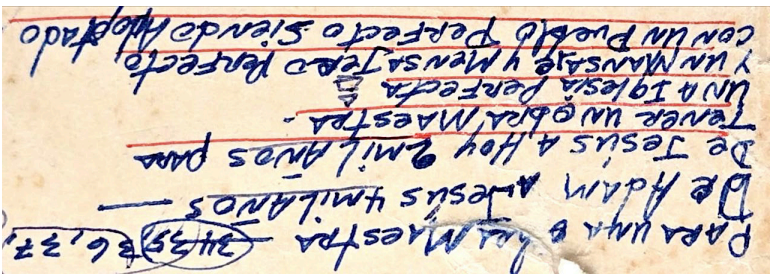 PARA UNA OBRA MAESTRA - 34,35,36,37,
DE ADAM A JESÚS 4 MIL AÑOS —
DE JESÚS A HOY 2 MIL AÑOS PARA
TENER UN OBRA MAESTRA -
UNA IGLESIA PERFECTA
Y UN MANSAJE Y MENSAJERO PERFECTO,
CON UN PUEBLO PERFECTO SIENDO ADOPTADO